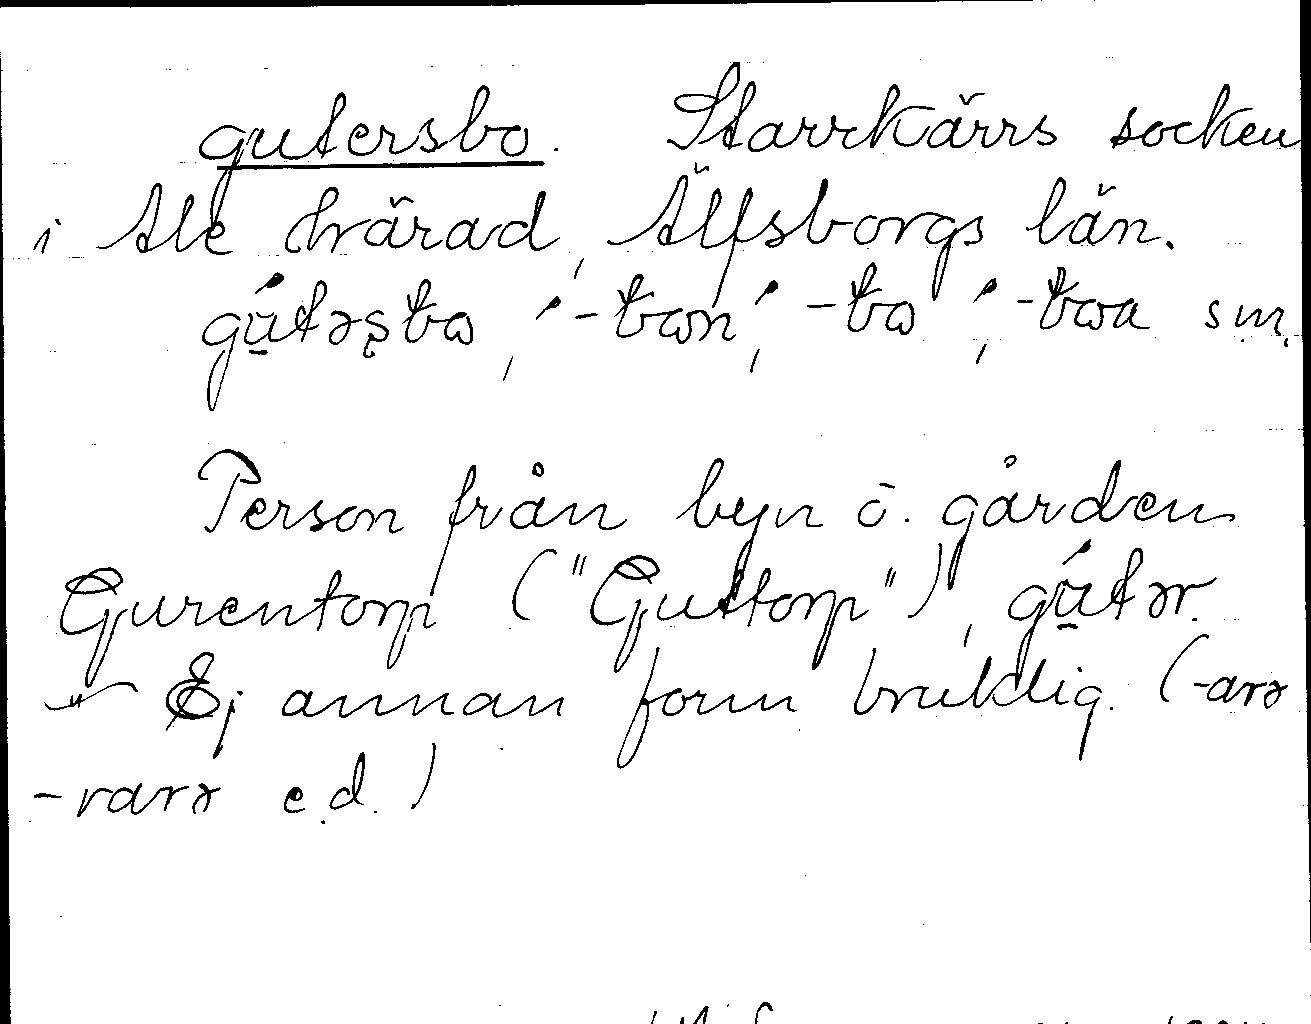 gutersbo. Starrkärrs socken
i Ale härad, Älfsborgs län.
gu̱tərs̨bω, ´-bωn, ´-bω, ´-bωa sm.
Person från byn o. gården
Gurentorp ("Guttorp"), gu̱tər.
— Ej annan form bruklig. (-arə
-rarə e.d.)